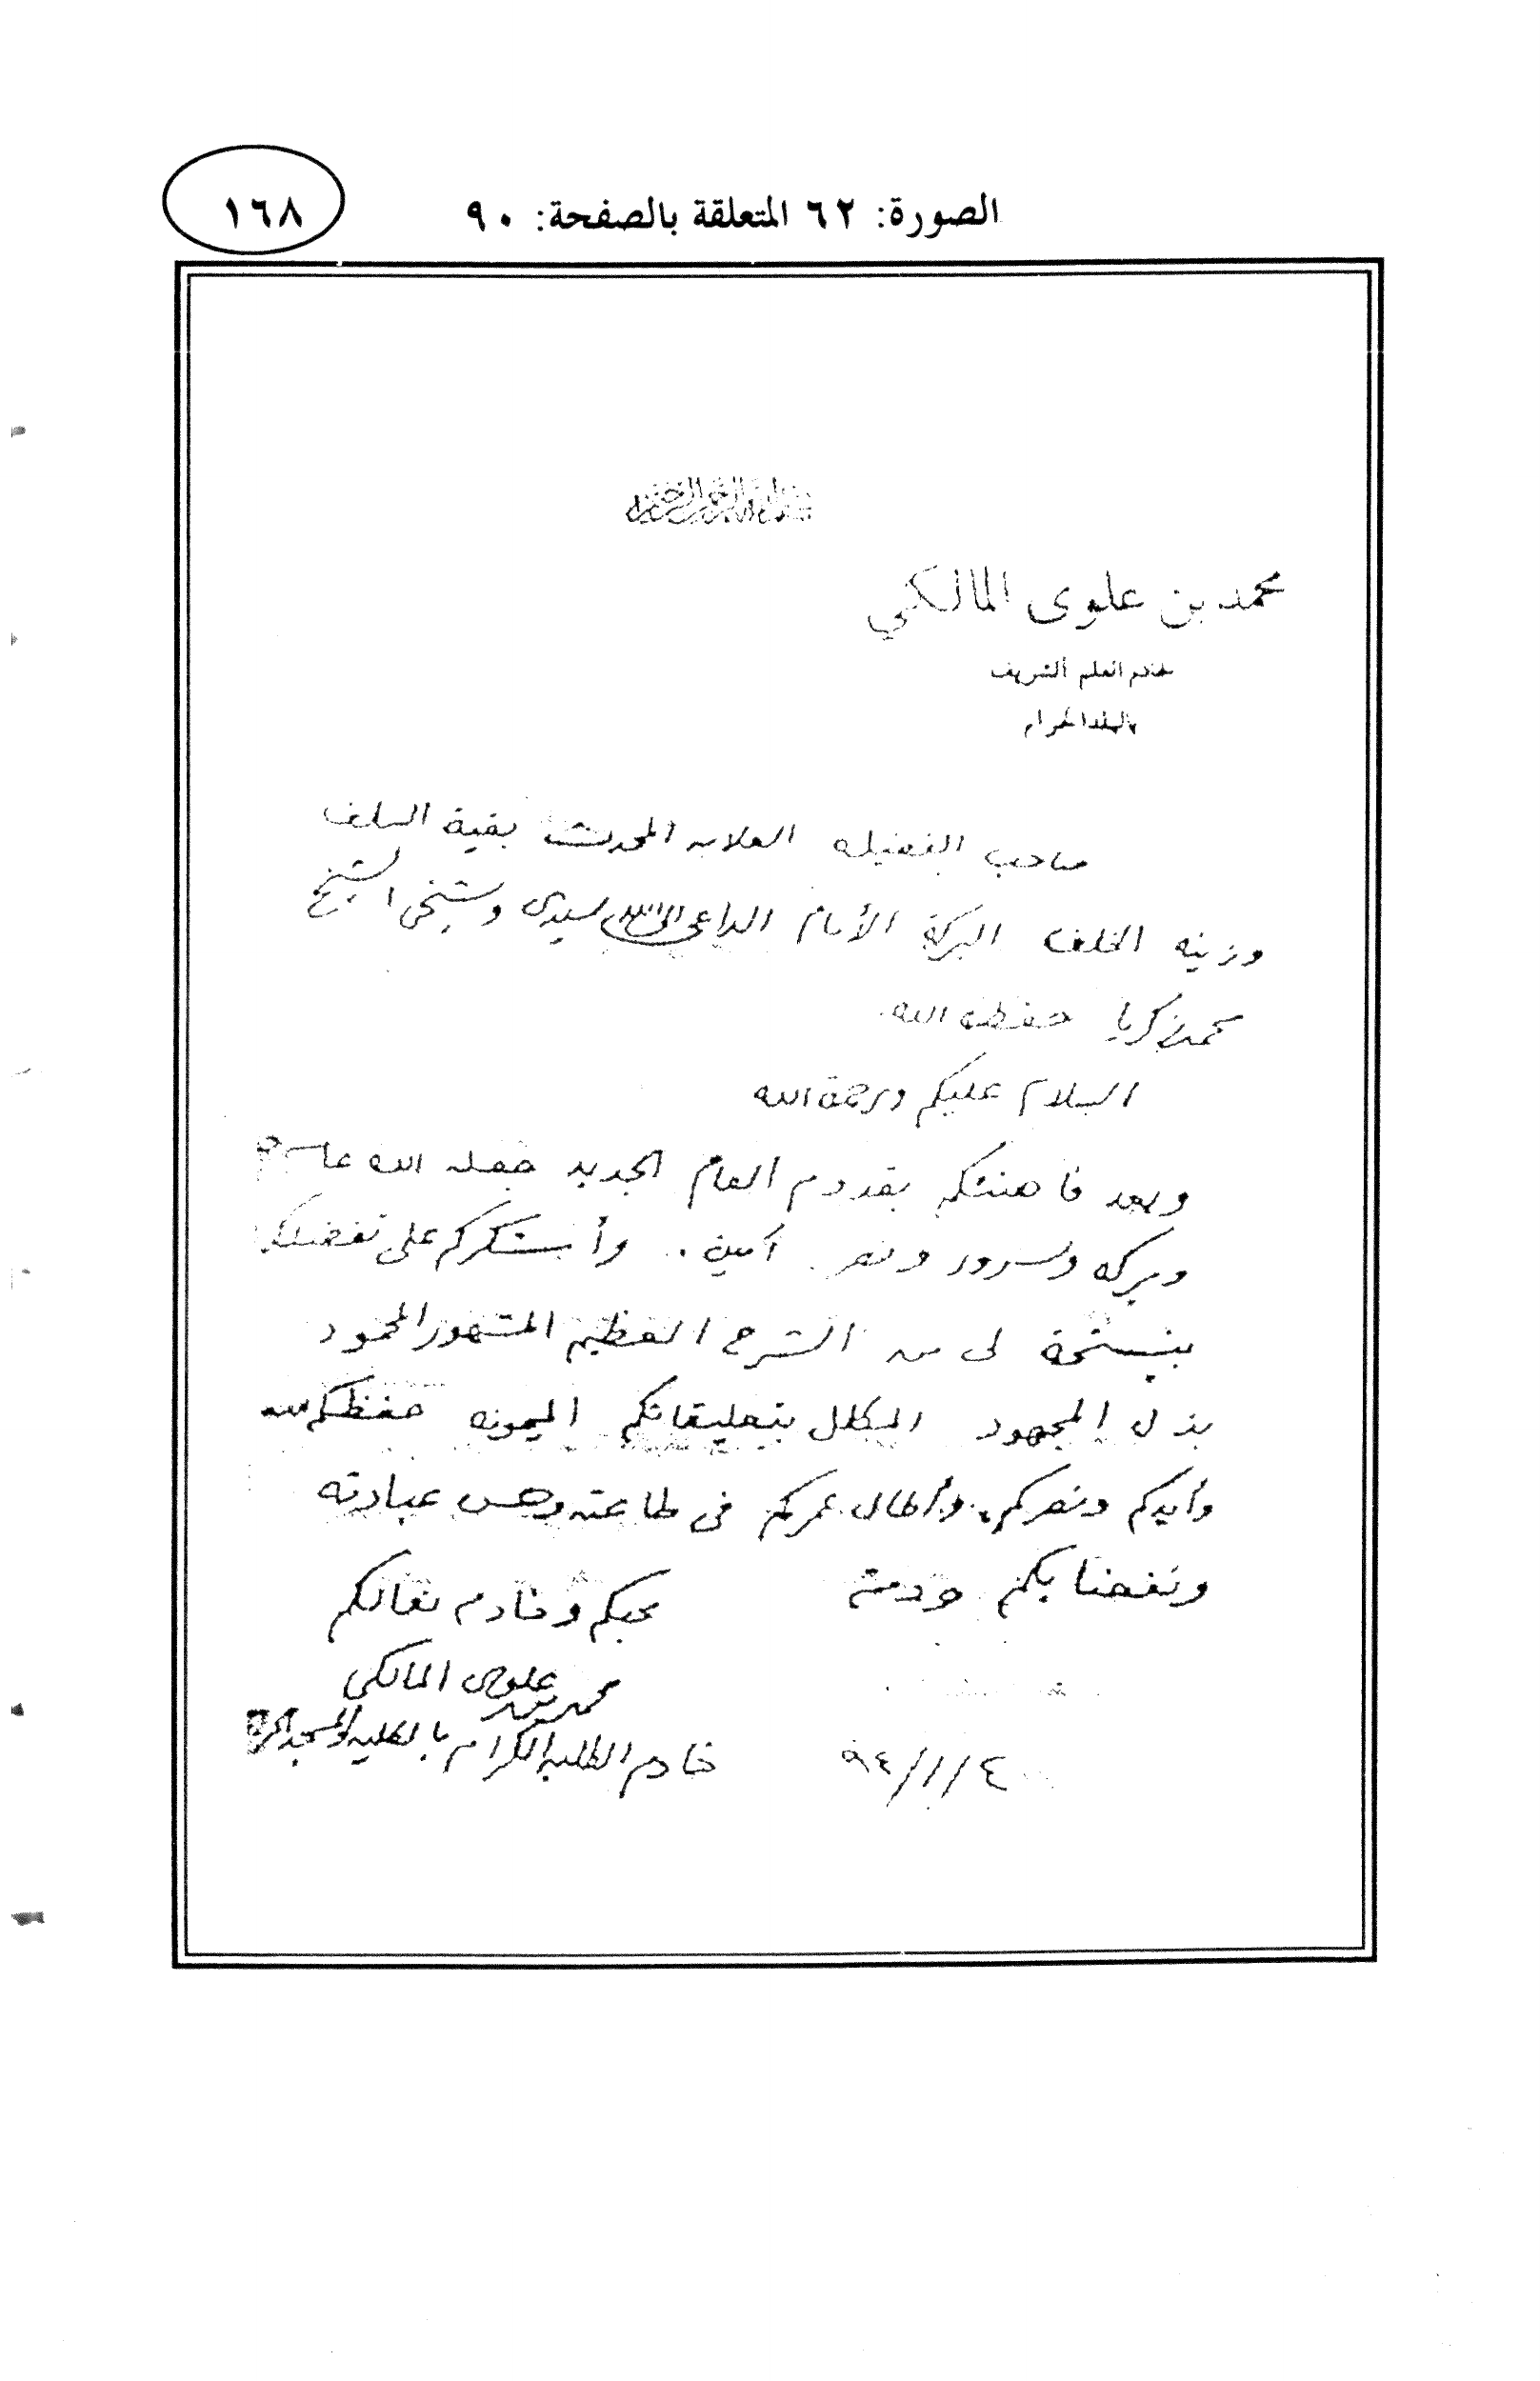 الصورة: ٦٢ المتعلقة بالصفحة: ٩٠
١٦٨
بسم الله الرحمن الرحيم
محمد بن علوى المالكي
خادم العلم الشريف
بالبلد الحرام
صاحب الفضيله العلامه المحدث بقية السلف
وزينه الخلف البركة الأمام الداعى الى الله سيدى وشيخى الشيخ
محمد زكريا حفظه الله
السلام عليكم ورحمة الله
وبعد فاهنئكم بقدوم العام الجديد جعله الله عام
وبركه وسرور ونصر آمين . وأشكركم على تفضلكم
بنسخة لى من الشرح العظيم المشهور المحمود
بذل المجهود المكلل بتعليقاتكم الميمونه حفظكم الله
وأيدكم ونصركم وأطال عمركم فى طاعته وحسن عبادته
ونفعنا بكم
محبكم وخادم نعالكم
محمد بن علوى المالكى
خادم الطلبه الكرام بالكليه والمسجد
٤/١/٩٤